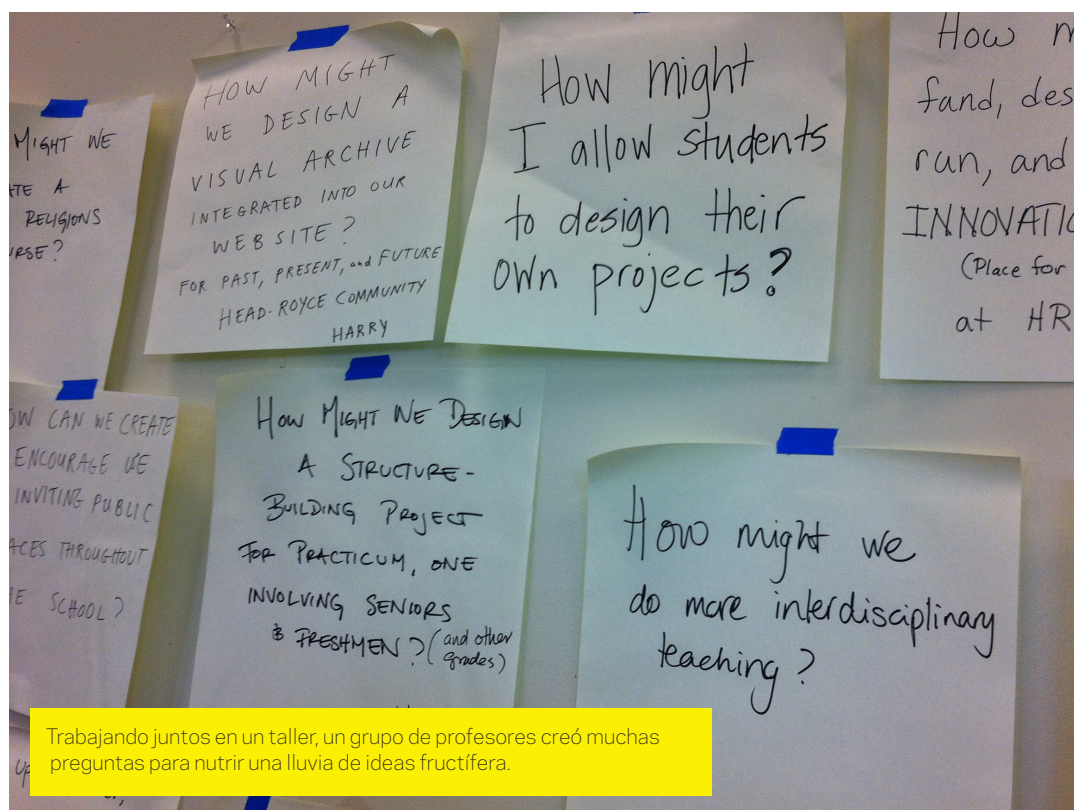 MIGHT WE
A
RELIGIONS
HOW MIGHT
WE DESIGN A
VISUAL ARCHIVE
INTEGRATED INTO OUR
WEBSITE?
FOR PAST, PRESENT, and FUTURE
HEAD-ROYCE COMMUNITY
HARRY
How might
I allow students
to design their
own projects?
How
run, and
(Place for
at HR
CAN WE CREATE
ENCOURAGE
INVITING PUBLIC
THROUGHOUT
SCHOOL?
HOW MIGHT WE DESIGN
A STRUCTURE-
BUILDING PROJECT
FOR PRACTICUM, ONE
INVOLVING SENIORS
& FRESHMEN? (and other
grades)
How might we
do more interdisciplinary
teaching?
Trabajando juntos en un taller, un grupo de profesores creó muchas
preguntas para nutrir una lluvia de ideas fructífera.